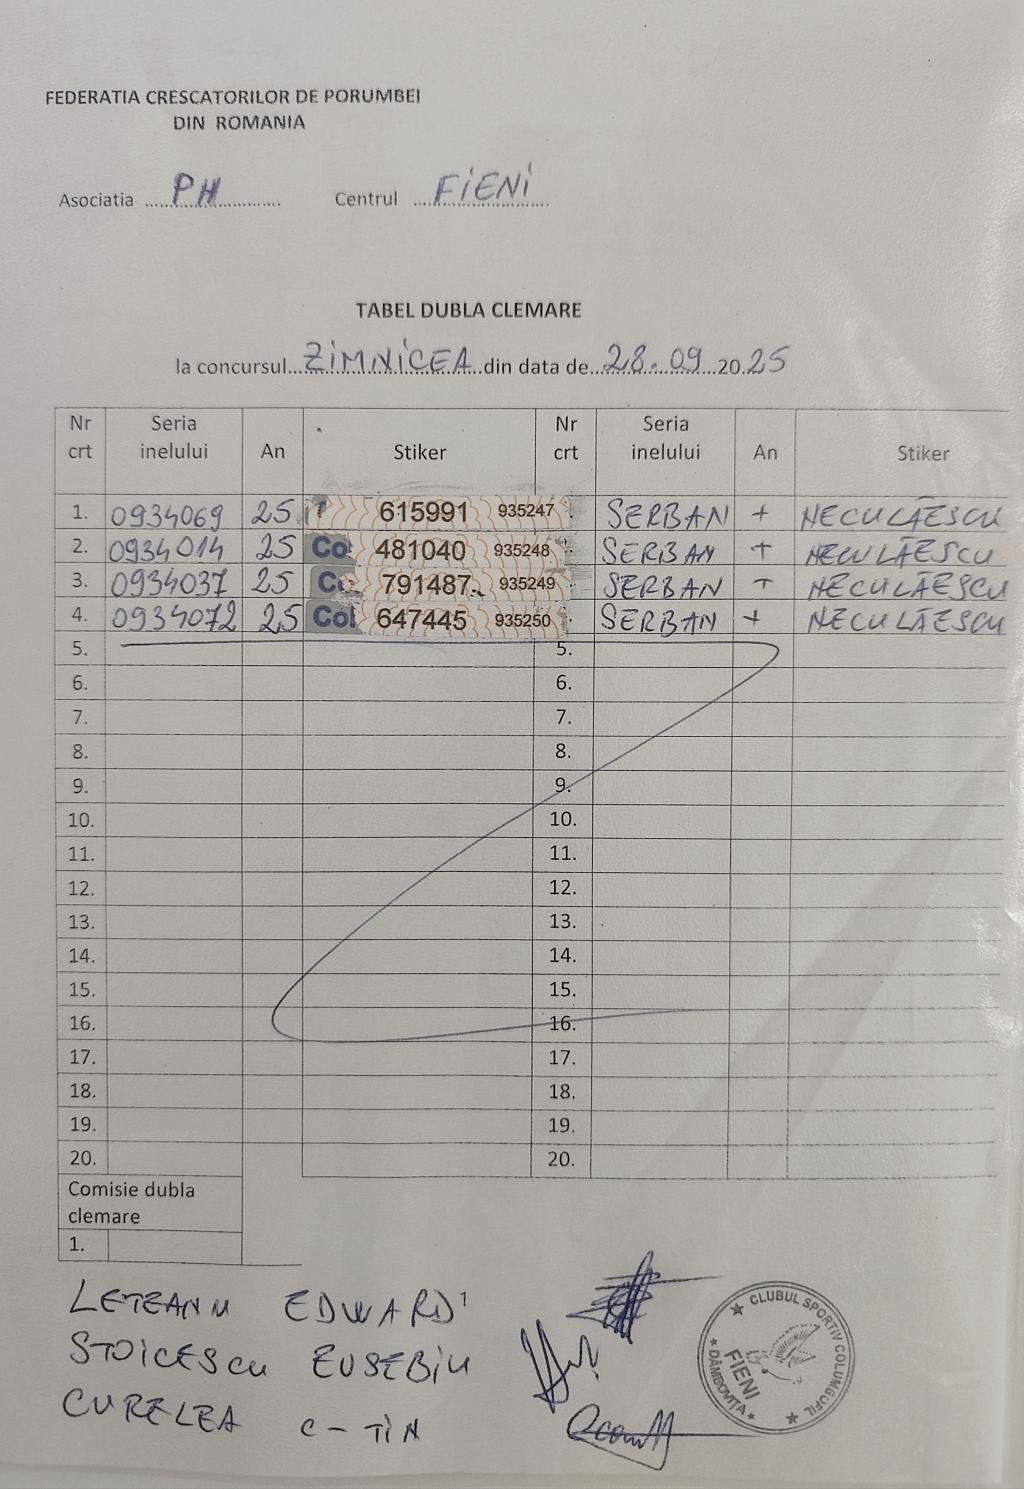 FEDERATIA CRESCATORILOR DE PORUMBEI
DIN ROMANIA
Asociatia ...PH... Centrul ...FiENi...
TABEL DUBLA CLEMARE
la concursul...ZiMNiCEA...din data de...28.09...2025
Nr crt Seria inelului An Stiker Nr crt Seria inelului An Stiker
1. 0934069 25 615991 935247 SERBAN + NECULĂESCU
2. 0934014 25 Co 481040 935248 SERBAN + NECULĂESCU
3. 0934037 25 Co 791487 935249 SERBAN + NECULĂESCU
4. 0934072 25 Col 647445 935250 SERBAN + NECULĂESCU
5. 5.
6. 6.
7. 7.
8. 8.
9. 9.
10. 10.
11. 11.
12. 12.
13. 13.
14. 14.
15. 15.
16. 16.
17. 17.
18. 18.
19. 19.
20. 20.
Comisie dubla
clemare
1.
LETEANU EDWARD
STOiCESCU EUSEBiU
CURELEA C-TiN
CLUBUL SPORTIV COLUMBOFIL
FIENI
DÂMBOVIȚA